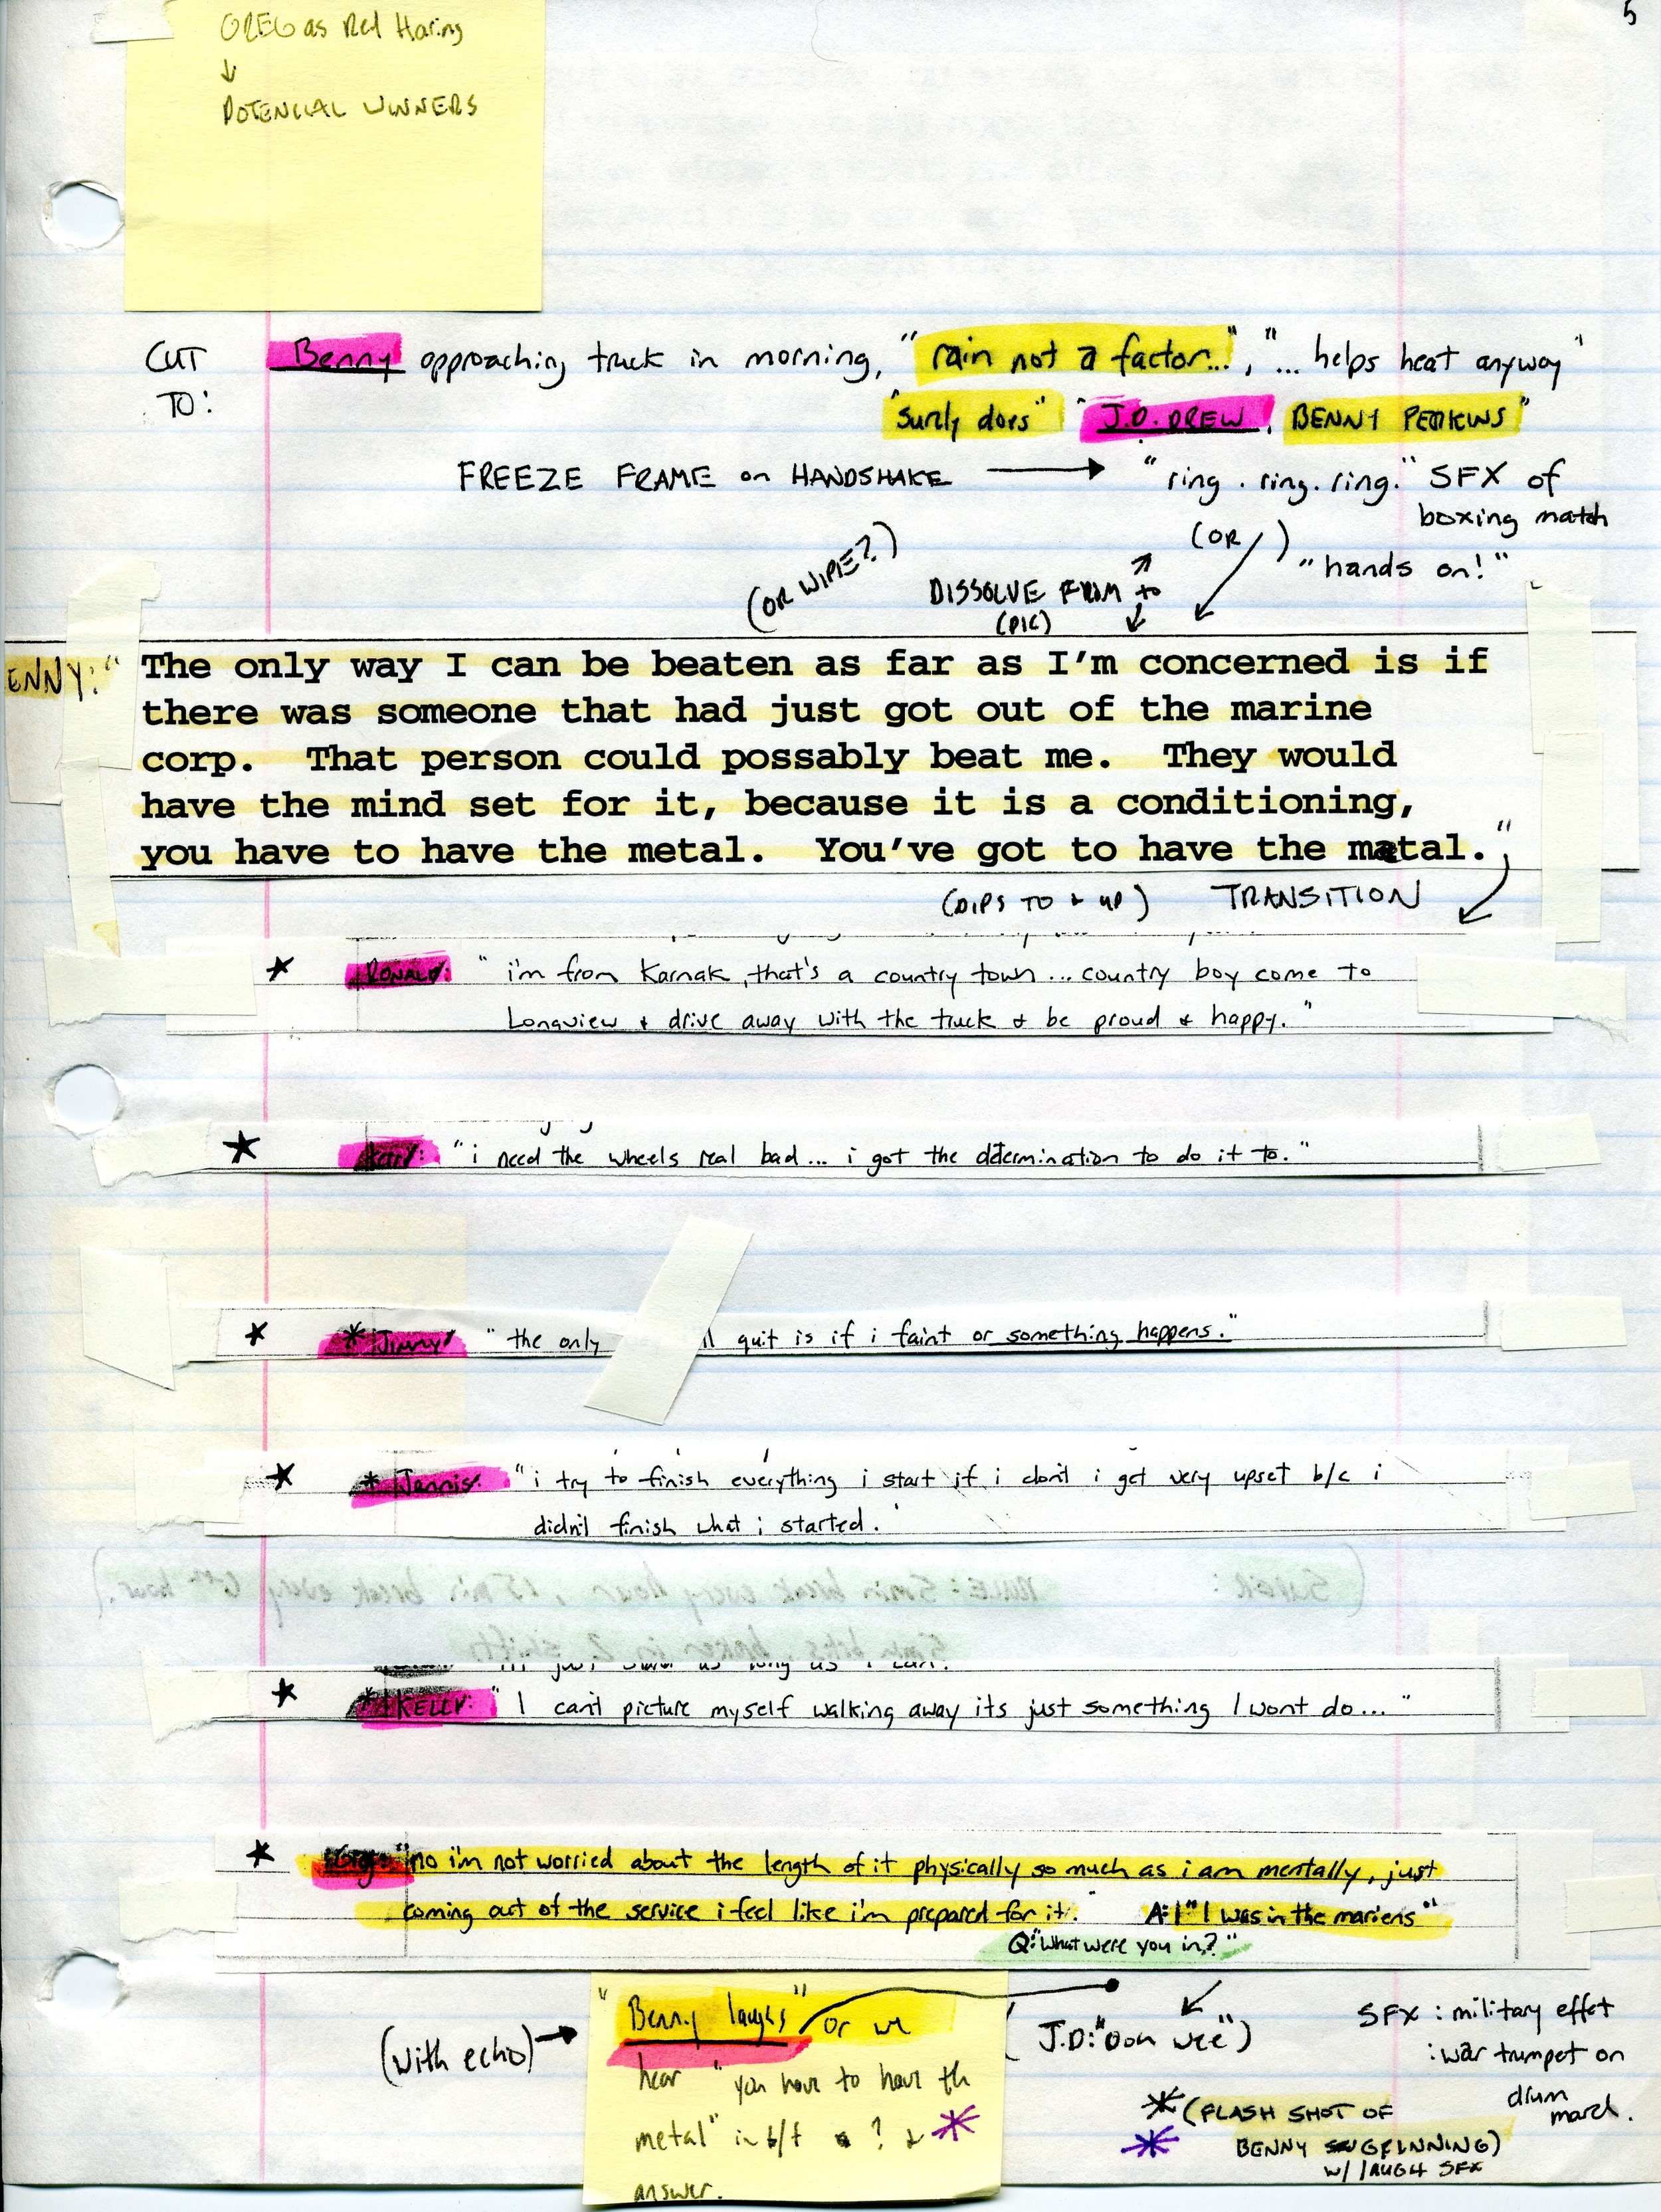 5
GREG as Red Haring
↓
POTENCIAL WINNERS
CUT TO: Benny approaching truck in morning, "rain not a factor...", "... helps heat anyway"
"surely does" "J.D. DREW, BENNY PERKINS"
FREEZE FRAME on HANDSHAKE → "ring. ring. ring." SFX of boxing match
(OR WIPE?) DISSOLVE FROM to (PIC) (OR ) "hands on!"
ENNY: "The only way I can be beaten as far as I'm concerned is if
there was someone that had just got out of the marine
corp. That person could possably beat me. They would
have the mind set for it, because it is a conditioning,
you have to have the metal. You've got to have the metal."
(DIPS TO & UP) TRANSITION
* RONALD: "i'm from Karnak, that's a country town... country boy come to
Longview & drive away with the truck & be proud & happy."
* "i need the wheels real bad... i got the determination to do it to."
* * "the only quit is if i faint or something happens."
* * Jannis: "i try to finish everything i start if i don't i get very upset b/c i
didn't finish what i started.
* * KELLY: "I can't picture myself walking away its just something I wont do..."
* Greg: "no i'm not worried about the length of it physically so much as i am mentally, just
coming out of the service i feel like i'm prepared for it." A: "I was in the mariens"
Q: "What were you in?"
(with echo) → "Benny laughs" or we
hear "you have to have th
metal" in b/t ? & *
answer.
(J.D: "ooh wee")
SFX : military effct
: war trumpet on
drum march.
* (FLASH SHOT OF
* BENNY GRINNING)
w/ laugh SFX